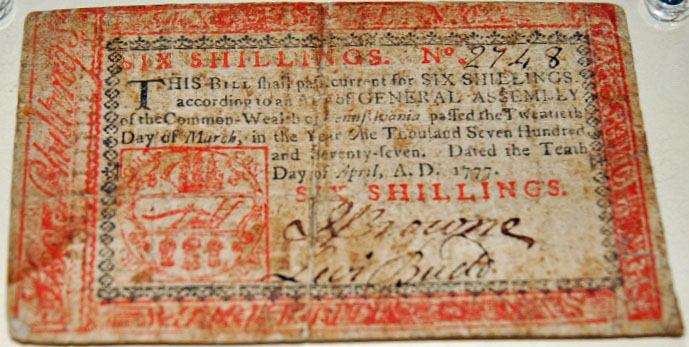 SIX SHILLINGS. No. 2748
THIS BILL shall pass current for SIX SHILLINGS,
according to an Act of GENERAL ASSEMBLY
of the Common-Wealth of Pennsylvania passed the Twentieth
Day of March, in the Year One Thousand Seven Hundred
and Seventy-seven. Dated the Tenth
Day of April, A. D. 1777.
SIX SHILLINGS.
Browne
Levi Budd
Shillings